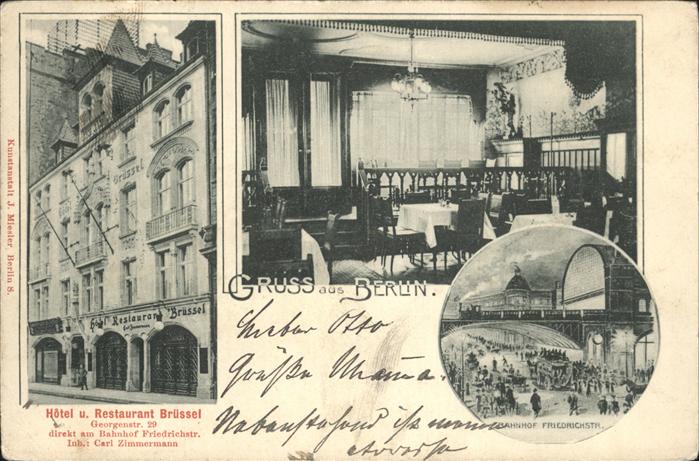 Brüssel
Hôtel Restaurant Brüssel
Carl Zimmermann
Kunstanstalt J. Miesler, Berlin S.
Hôtel u. Restaurant Brüssel
Georgenstr. 29
direkt am Bahnhof Friedrichstr.
Inh.: Carl Zimmermann
GRUSS aus BERLIN.
Lieber Otto
Grüße Mama.
ist meine
Adresse
BAHNHOF FRIEDRICHSTR.